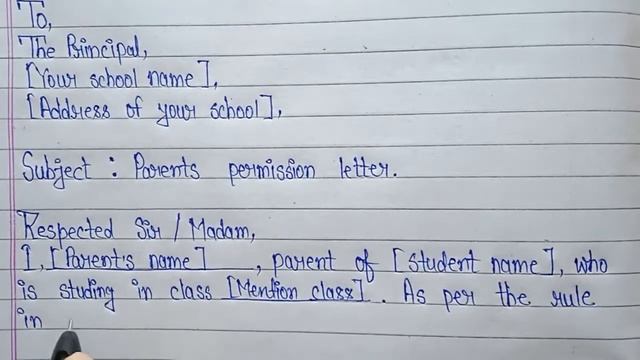 To,
The Principal,
[Your school name],
[Address of your school],
Subject : Parents permission letter.
Respected Sir / Madam,
I, [Parent's name] , parent of [Student name], who
is studing in class [Mention class]. As per the rule
in